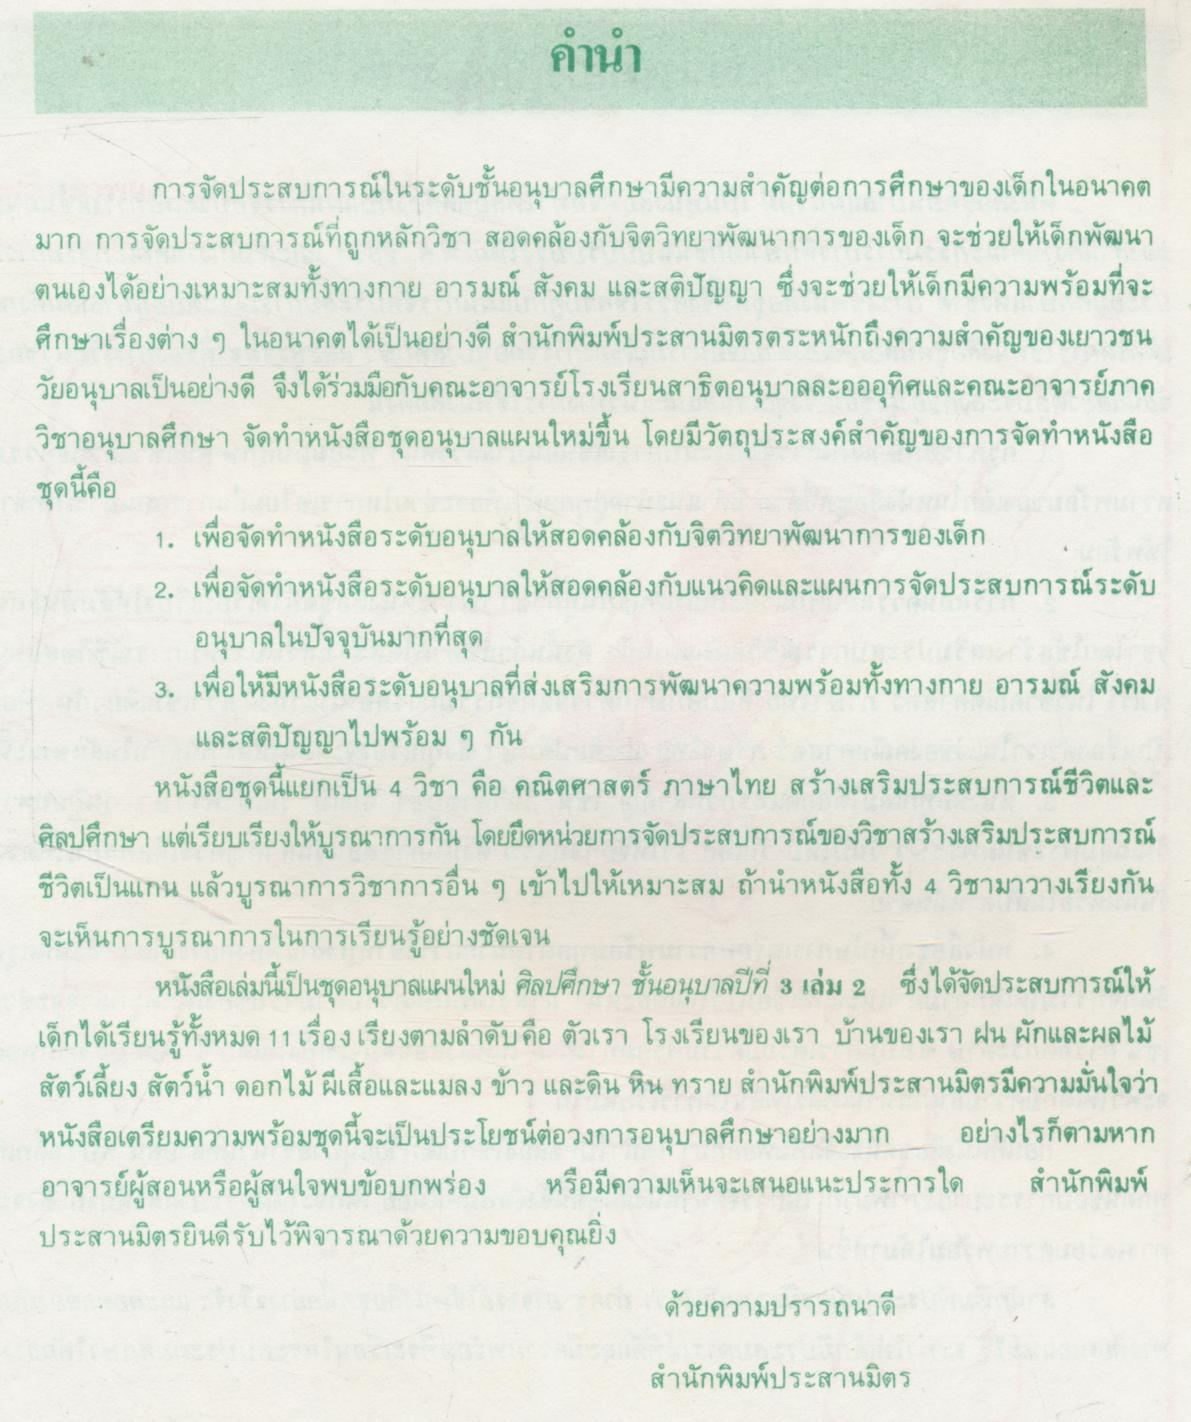 คำนำ
การจัดประสบการณ์ในระดับชั้นอนุบาลศึกษามีความสำคัญต่อการศึกษาของเด็กในอนาคต
มาก การจัดประสบการณ์ที่ถูกหลักวิชา สอดคล้องกับจิตวิทยาพัฒนาการของเด็ก จะช่วยให้เด็กพัฒนา
ตนเองได้อย่างเหมาะสมทั้งทางกาย อารมณ์ สังคม และสติปัญญา ซึ่งจะช่วยให้เด็กมีความพร้อมที่จะ
ศึกษาเรื่องต่าง ๆ ในอนาคตได้เป็นอย่างดี สำนักพิมพ์ประสานมิตรตระหนักถึงความสำคัญของเยาวชน
วัยอนุบาลเป็นอย่างดี จึงได้ร่วมมือกับคณะอาจารย์โรงเรียนสาธิตอนุบาลละอออุทิศและคณะอาจารย์ภาค
วิชาอนุบาลศึกษา จัดทำหนังสือชุดอนุบาลแผนใหม่ขึ้น โดยมีวัตถุประสงค์สำคัญของการจัดทำหนังสือ
ชุดนี้คือ
1. เพื่อจัดทำหนังสือระดับอนุบาลให้สอดคล้องกับจิตวิทยาพัฒนาการของเด็ก
2. เพื่อจัดทำหนังสือระดับอนุบาลให้สอดคล้องกับแนวคิดและแผนการจัดประสบการณ์ระดับ
อนุบาลในปัจจุบันมากที่สุด
3. เพื่อให้มีหนังสือระดับอนุบาลที่ส่งเสริมการพัฒนาความพร้อมทั้งทางกาย อารมณ์ สังคม
และสติปัญญาไปพร้อม ๆ กัน
หนังสือชุดนี้แยกเป็น 4 วิชา คือ คณิตศาสตร์ ภาษาไทย สร้างเสริมประสบการณ์ชีวิตและ
ศิลปศึกษา แต่เรียบเรียงให้บูรณาการกัน โดยยึดหน่วยการจัดประสบการณ์ของวิชาสร้างเสริมประสบการณ์
ชีวิตเป็นแกน แล้วบูรณาการวิชาการอื่น ๆ เข้าไปให้เหมาะสม ถ้านำหนังสือทั้ง 4 วิชามาวางเรียงกัน
จะเห็นการบูรณาการในการเรียนรู้อย่างชัดเจน
หนังสือเล่มนี้เป็นชุดอนุบาลแผนใหม่ ศิลปศึกษา ชั้นอนุบาลปีที่ 3 เล่ม 2 ซึ่งได้จัดประสบการณ์ให้
เด็กได้เรียนรู้ทั้งหมด 11 เรื่อง เรียงตามลำดับคือ ตัวเรา โรงเรียนของเรา บ้านของเรา ฝน ผักและผลไม้
สัตว์เลี้ยง สัตว์น้ำ ดอกไม้ ผีเสื้อและแมลง ข้าว และดิน หิน ทราย สำนักพิมพ์ประสานมิตรมีความมั่นใจว่า
หนังสือเตรียมความพร้อมชุดนี้จะเป็นประโยชน์ต่อวงการอนุบาลศึกษาอย่างมาก อย่างไรก็ตามหาก
อาจารย์ผู้สอนหรือผู้สนใจพบข้อบกพร่อง หรือมีความเห็นจะเสนอแนะประการใด สำนักพิมพ์
ประสานมิตรยินดีรับไว้พิจารณาด้วยความขอบคุณยิ่ง
ด้วยความปรารถนาดี
สำนักพิมพ์ประสานมิตร